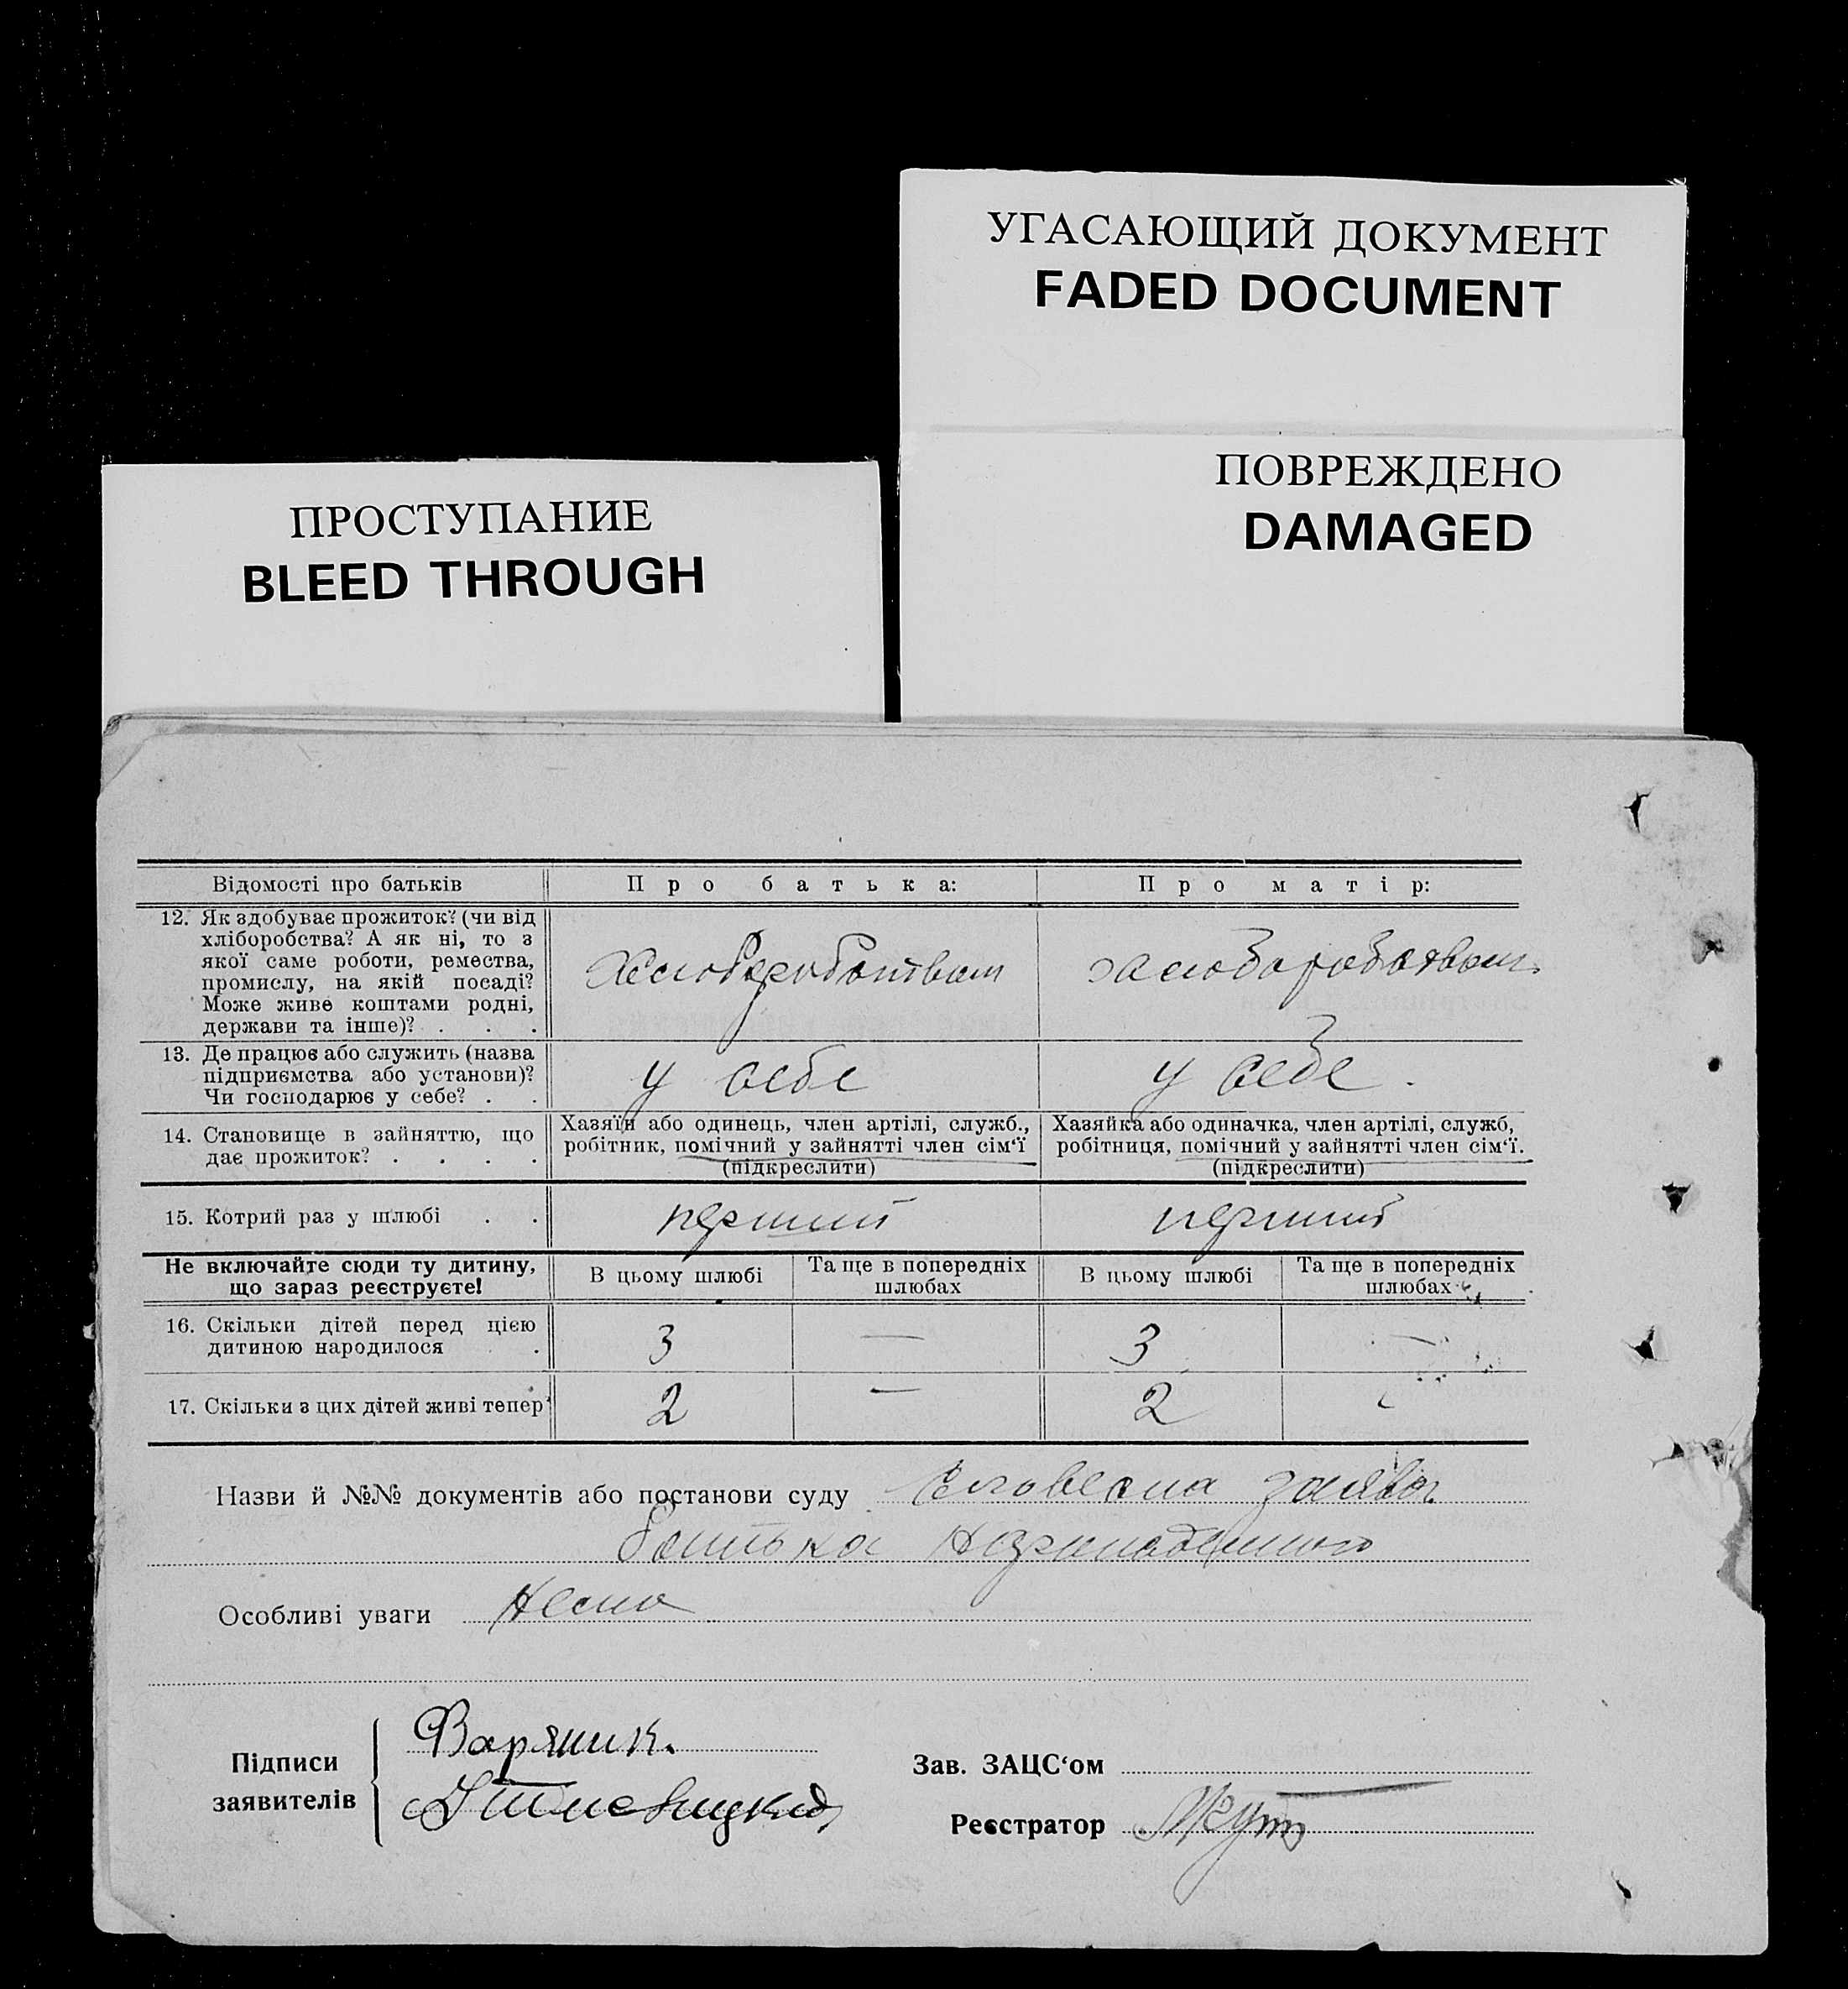 УГАСАЮЩИЙ ДОКУМЕНТ
FADED DOCUMENT
ПОВРЕЖДЕНО
DAMAGED
ПРОСТУПАНИЕ
BLEED THROUGH
Відомості про батьків Про батька: Про матір:
12. Як здобуває прожиток? (чи від
хліборобства? А як ні, то з
якої саме роботи, ремества,
промислу, на якій посаді?
Може живе коштами родні,
держави та інше)? . . .
13. Де працює або служить (назва
підприємства або установи)?
Чи господарює у себе? . .
у себе у себе.
14. Становище в зайняттю, що
дає прожиток? . . . .
Хазяїн або одинець, член артілі, служб.,
робітник, помічний у зайнятті член сім‘ї
(підкреслити)
Хазяйка або одиначка, член артілі, служб,
робітниця, помічний у зайнятті член сім‘ї.
(підкреслити)
15. Котрий раз у шлюбі . . перший перший
Не включайте сюди ту дитину,
що зараз реєструєте!
В цьому шлюбі
Та ще в попередніх
шлюбах
В цьому шлюбі
Та ще в попередніх
шлюбах
16. Скільки дітей перед цією
дитиною народилося .
3 — 3 —
17. Скільки з цих дітей живі тепер 2 — 2
Назви й №№ документів або постанови суду Словесна заява
батька
Особливі уваги
Підписи
заявителів
Зав. ЗАЦС‘ом
Реєстратор